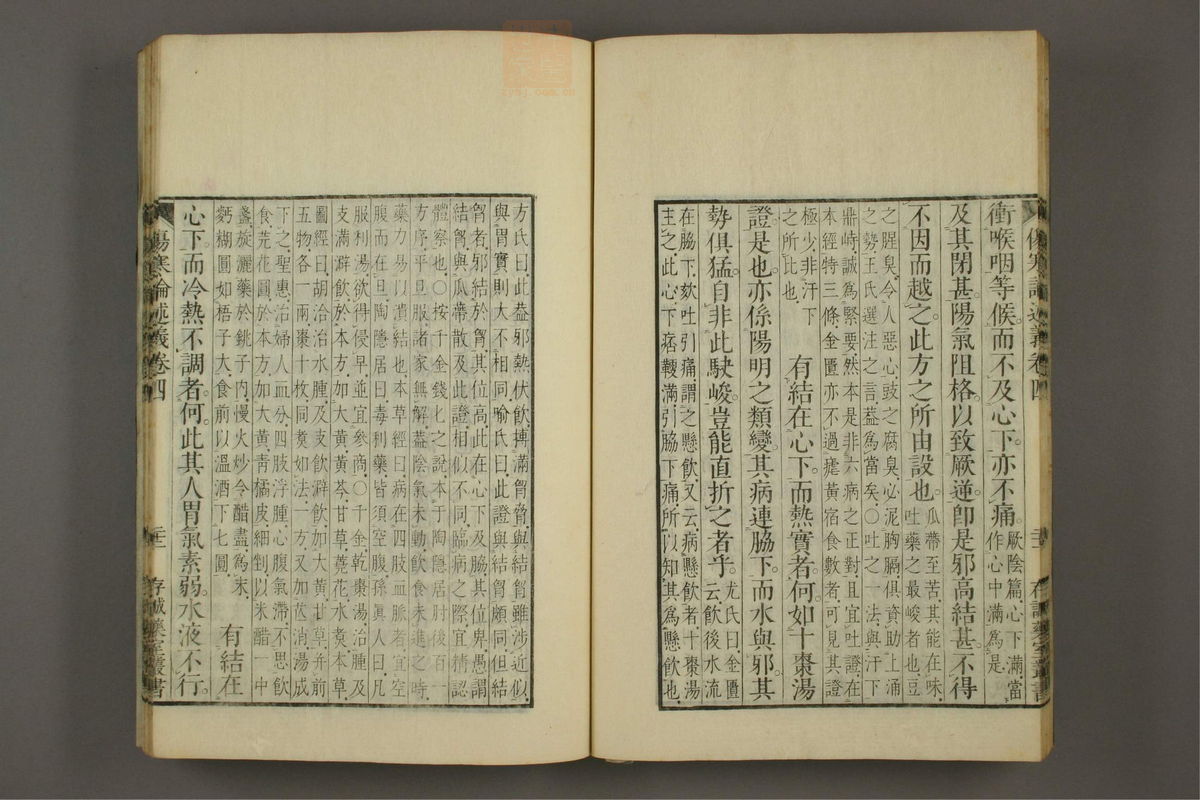 傷寒論述義卷四 存誠藥室叢書
衝喉咽等候而不及心下亦不痛厥陰篇心下滿當
作心中滿為是
及其閉甚陽氣阻格以致厥逆卽是邪高結甚不得
不因而越之此方之所由設也瓜蒂至苦其能在味
吐藥之最峻者也豆
之腥臭令人惡心豉之腐臭必泥胸膈俱資助上涌
之勢王氏選注之言蓋為當矣○吐之一法與汗下
鼎峙誠為緊要然本是非六病之正對且宜吐證在
本經特三條金匱亦不過瘧黃宿食數者可見其證
極少非汗下
之所比也
有結在心下而熱實者何如十棗湯
證是也亦係陽明之類變其病連脇下而水與邪其
勢俱猛自非此駃峻豈能直折之者乎尤氏曰金匱
云飲後水流
在脇下欬吐引痛謂之懸飲又云病懸飲者十棗湯
主之此心下痞鞕滿引脇下痛所以知其為懸飲也
方氏曰此蓋邪熱伏飲摶滿胷脅與結胷雖涉近似
與胃實則大不相同喻氏曰此證與結胷頗同但結
胷者邪結於胷其位高此在心下及脇其位卑愚謂
結胷與瓜蒂散及此證相似不同臨病之際宜精認
體察也○按千金錢匕之說本于陶隱居肘後百一
方序平旦服諸家無解蓋陰氣未動飲食未進之時
藥力易以潰結也本草經曰病在四肢血脈者宜空
腹而在旦陶隱居曰毒利藥皆須空腹孫眞人曰凡
服利湯欲得侵早並宜參商○千金乾棗湯治腫及
支滿澼飲於本方加大黃黃芩甘草蕘花水煑本草
圖經曰胡洽治水腫及支飲澼飲加大黃甘草并前
五物各一兩棗十枚同煑如法一方又加芒消湯成
下之聖惠治婦人血分四肢浮腫心腹氣滯不思飲
食芫花圓於本方加大黃靑橘皮細剉以米醋一中
盞旋灑藥於銚子內慢火炒令醋盡為末
麪糊圓如梧子大食前以溫酒下七圓
有結在
心下而冷熱不調者何此其人胃氣素弱水液不行
傷寒論述義卷四 二十二 存誠藥室叢書